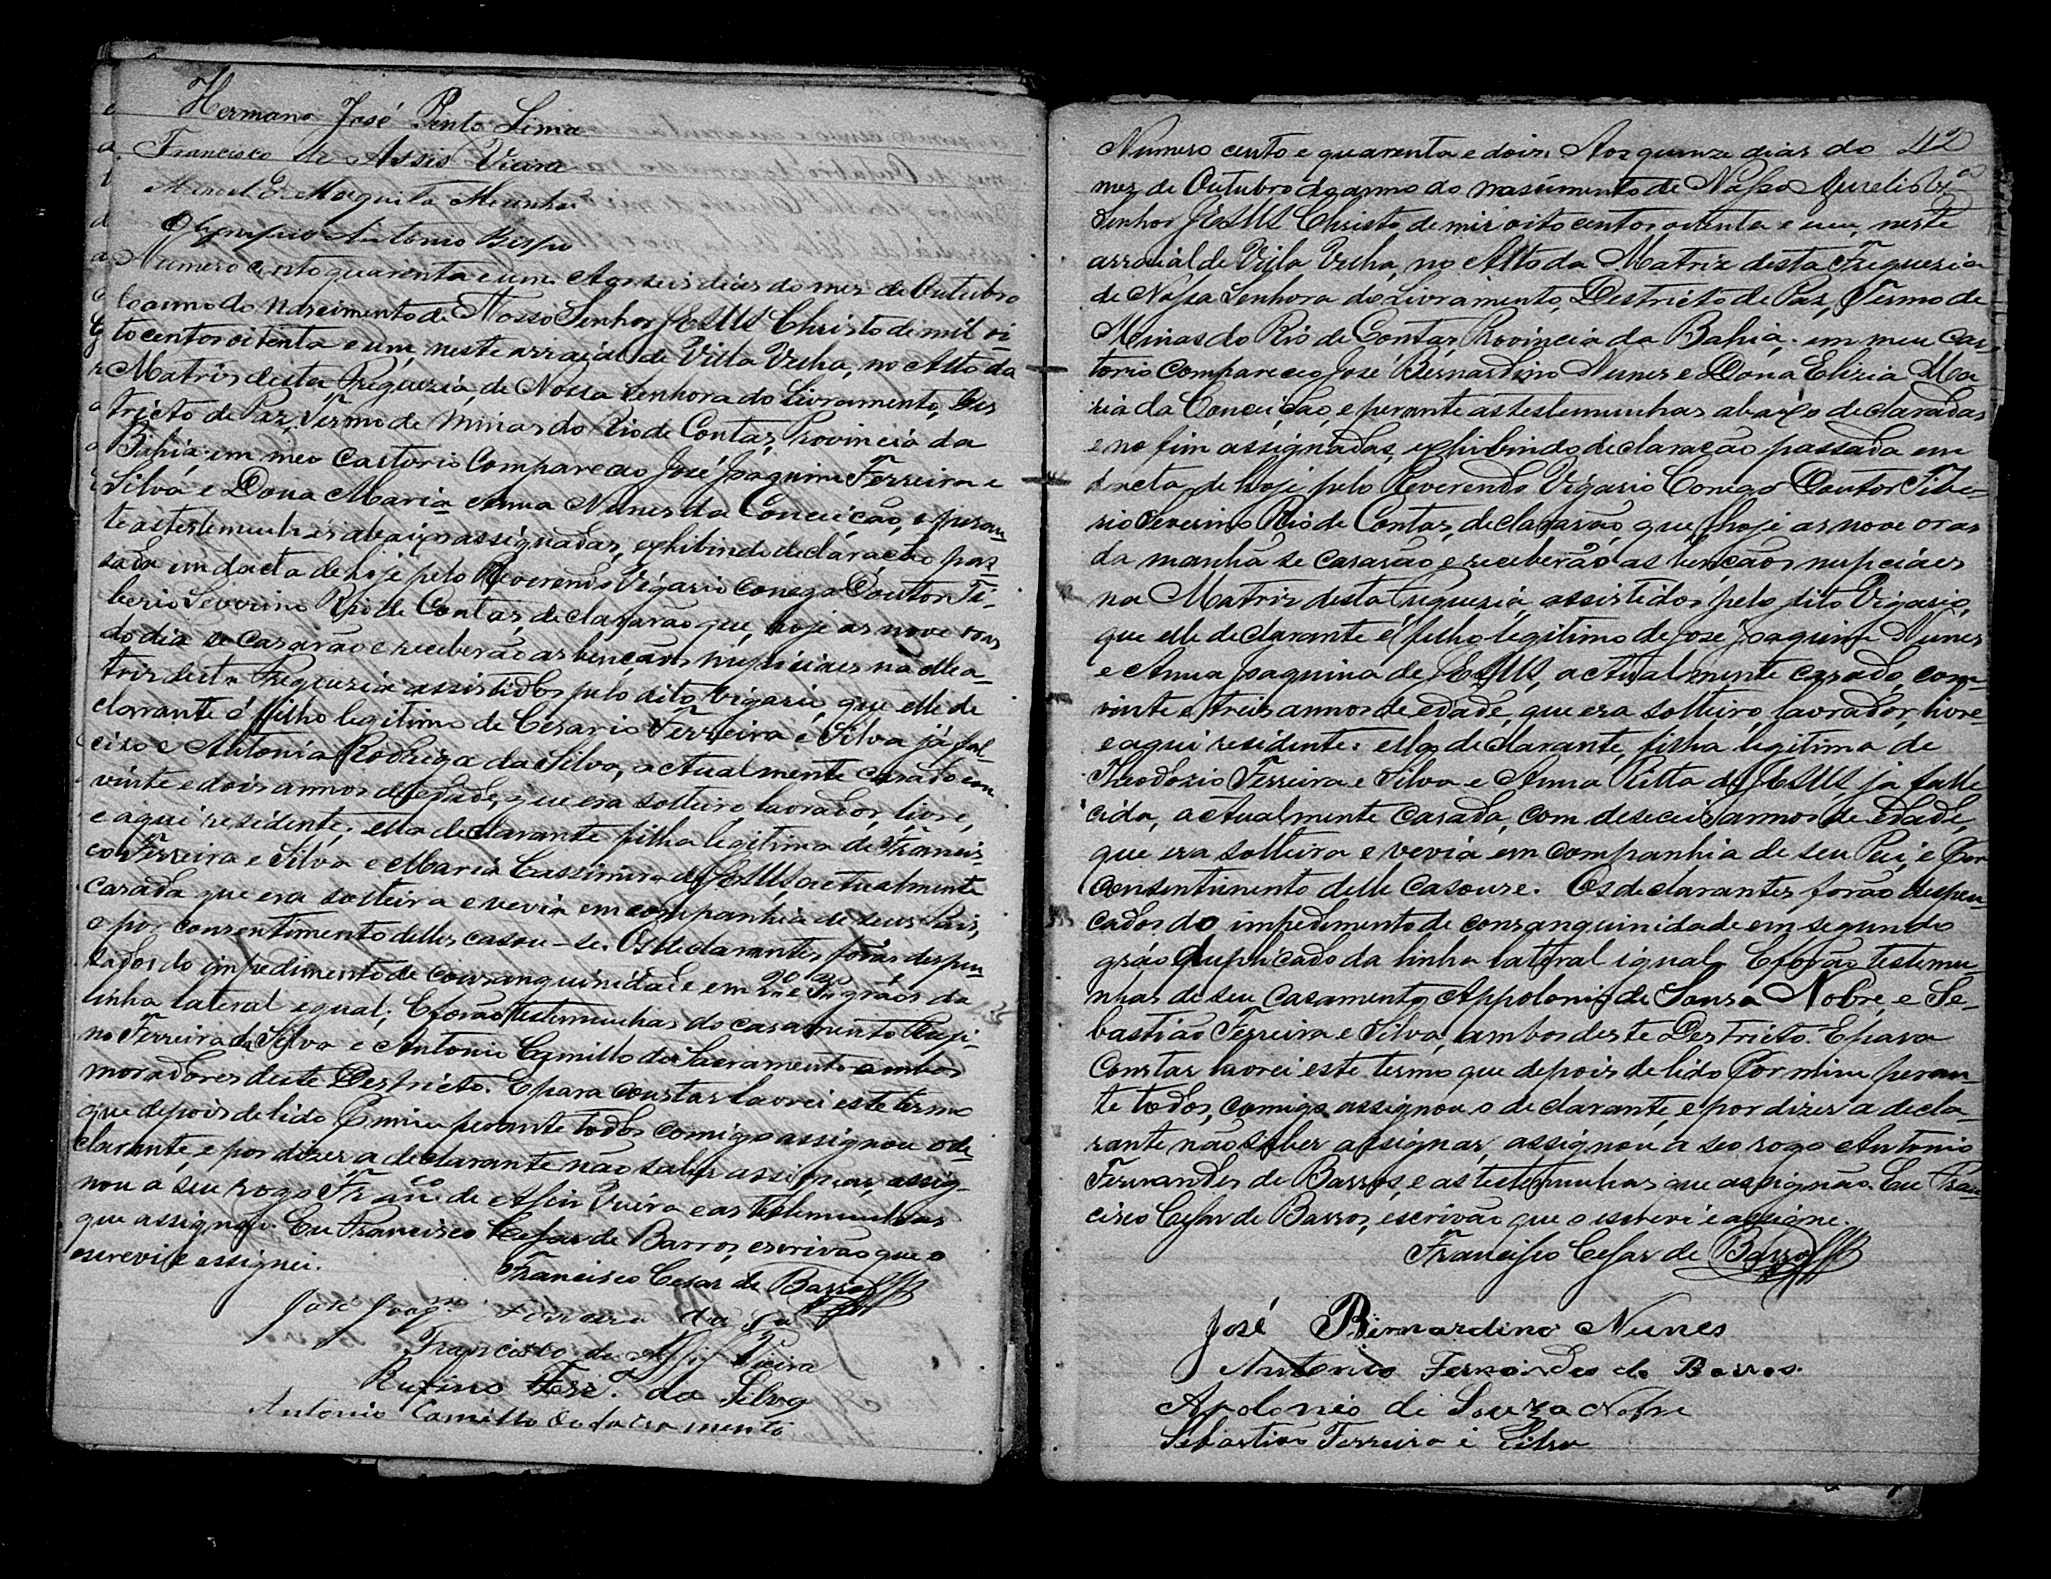 Hermano José Pinto Lima
Francisco de Assis Vieira
Manoel de Mesquita
Olympio Antonio Bispo
Numero cento quarenta e um. Aos seis dias do mez de Outubro
do anno do Nascimento de Nosso Senhor JESUS Christo de mil oi-
tocentos oitenta e um, neste arraial de Villa Velha, no Alto da
Matriz desta Freguezia, de Nossa Senhora do Livramento, Des
tricto de Paz, Termo de Minas do Rio de Contas, Provincia da
Bahia em meo Cartorio Compareceo José Joaquim Ferreira e
Silva e Dona Maria Anna Nunes da Conceição, e peran
te as testemunhas abaixo assignadas, exhibindo declaração pas
sada em dacta de hoje pelo Reverendo Vigario conego Doutor Ti-
berio Severino Rio de Contas, declararão que, hoje as nove oras
do dia se casarão e receberão as bençãos nupiciaes na Ma-
triz desta Freguezia assistidos pelo dito Vigario que elle de
clarante é filho legitimo de Cesario Ferreira e Silva já fal-
cido e Antonia Rodriga da Silva, actualmente casado com
vinte e dois annos de edade, que era solteiro lavrador, livre,
e aqui residente, ella declarante filha legitima de Francis-
co Ferreira e Silva e Maria Cassimira de JESUS actualmente
casada que era solteira e vevia em companhia de seus Pais,
e por consentimento delles casou-se. Os declarantes forão despen
sados do impedimento de consanguinidade em 2º e 3º gráos da
linha lateral egual, E forão testemunhas do casamento Rufi-
no Ferreira da Silva e Antonio Camillo do Sacramento ambos
moradores deste Destricto. E para constar lavrei este termo
que depois de lido P mim perante todos comigo assignou o de
clarante, e por dizer a declarante não saber assignar, assig-
nou a seu rogo Franco de Assis Vieira e as testemunhas
que assignão. Eu Francisco Cesar de Barros, escrivão que o
escrevi e assignei.
Francisco Cesar de Barros
José Joaqm Ferreira da Sa
Francisco de Assis Vieira
Rufino Ferra da Silva
Antonio Camillo do Sacramento
42
Numero cento e quarenta e dois. Aos quinze dias do
mez de Outubro do anno do nascimento de Nosso
Senhor JESUS Christo de mir oito centos oitenta e um, neste
arraial de Villa Velha, no Alto da Matriz desta Freguezia
de Nossa Senhora do Livramento, Destricto de Paz, Termo de
Minas do Rio de Contas, Provincia da Bahia, em meu Car-
torio compareceo José Bernardino Nunes e Dona Elizia Ma
ria da Conceição, e perante as testemunhas abaixo declaradas
e no fim assignadas, exhibindo declaração passada em
dacta de hoje pelo Reverendo Vigario Conego Doutor Tibe-
rio Severino Rio de Contas, declararão, que, hoje as nove oras
da manhã se casarão e receberão as bençãos nupciáes
na Matriz desta Freguezia, assistidos pelo dito Vigario,
que elle declarante é filho legitimo de José Joaquim Nunes
e Anna Joaquina de JESUS, actualmente casado com
vinte e treis annos de edade, que era solteiro, lavrador, livre
e aqui residente: ella declarante, filha legitima de
Theodózio Ferreira e Silva e Anna Ritta de JESUS já falle
cida, actualmente casada, com deseceis annos de Edade,
que era solteira e vevia em companhia de seu Pai, e Por
consentimento delle casouse. Os declarantes forão despen-
çados do impedimento de consanguinidade em segundo
gráo duplicado da linha lateral igual. E forão testemu-
nhas de seu casamento Appolonio de Sousa Nobre, e Se-
bastião Ferreira e Silva, ambos deste Destricto. E para
Constar lavrei este termo que depois de lido Por mim peran-
te todos, comigo assignou o declarante, e por dizer a decla-
rante não saber assignar, assignou, a seo rogo Antonio
Fernandes de Barros, e as testemunhas que assignão. Eu Fran-
cisco Cesar de Barros, escrivão que o escrevi e assigne.
Francisco Cesar de Barros
José Bernardino Nunes
Antonio Fernandes de Barros.
Apolonio de Souza Nobre
Sebastião Ferreira e Silva